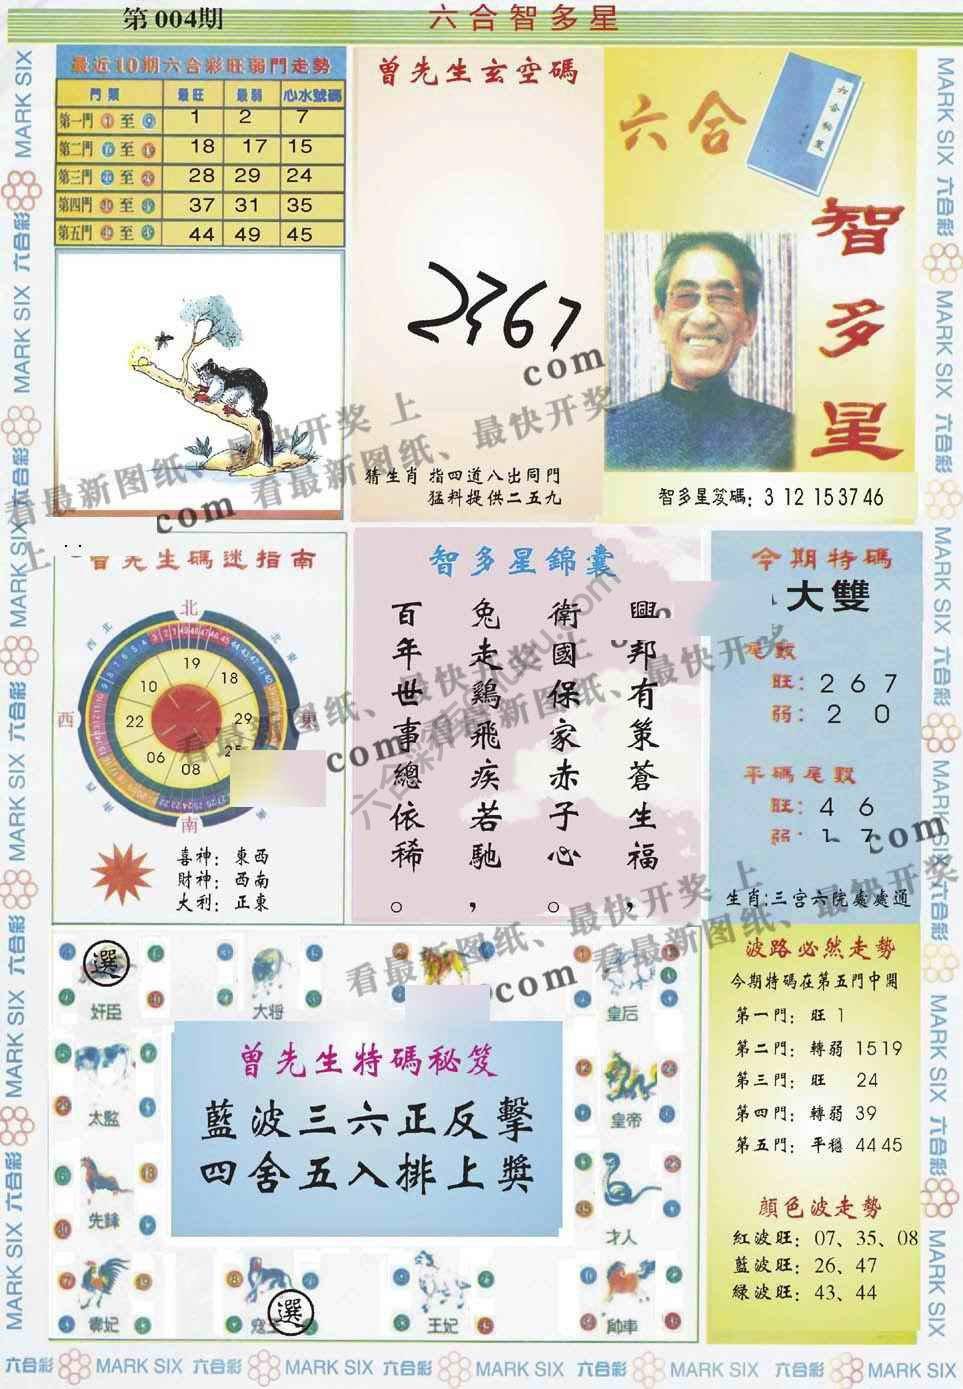 第004期
六合智多星
最近10期六合彩旺弱門走勢
門類 最旺 最弱 心水號碼
第一門 至 1 2 7
第二門 至 18 17 15
第三門 至 28 29 24
第四門 至 37 31 35
第五門 至 44 49 45
曾先生玄空碼
2367
猜生肖 指四道八出同門
猛料提供二五九
六合
智多星
智多星笈碼: 3 12 15 37 46
曾先生碼迷指南
北
西北
東北
西
東
西南
南
19
18
10
29
22
25
06
08
喜神: 東西
財神: 西南
大利: 正東
智多星錦囊
興邦有策蒼生福,
衛國保家赤子心。
兔走鷄飛疾若馳,
百年世事總依稀。
今期特碼
大雙
尾數
旺: 2 6 7
弱: 2 0
平碼尾數
旺: 4 6
弱: 1 7
生肖:三宫六院處處通
選
奸臣
大將
皇后
太監
皇帝
先鋒
才人
王妃
帥車
選
曾先生特碼秘笈
藍波三六正反擊
四舍五入排上獎
波路必然走勢
今期特碼在第五門中開
第一門: 旺 1
第二門: 轉弱 15 19
第三門: 旺 24
第四門: 轉弱 39
第五門: 平穩 44 45
顏色波走勢
紅波旺: 07、35、08
藍波旺: 26、47
綠波旺: 43、44
看最新图纸、最快开奖 上
com
看最新图纸、最快开奖 上
com
看最新图纸、最快开奖 上
com
看最新图纸、最快开奖 上
com
MARK SIX 六合彩 MARK SIX 六合彩 MARK SIX 六合彩 MARK SIX 六合彩 MARK SIX